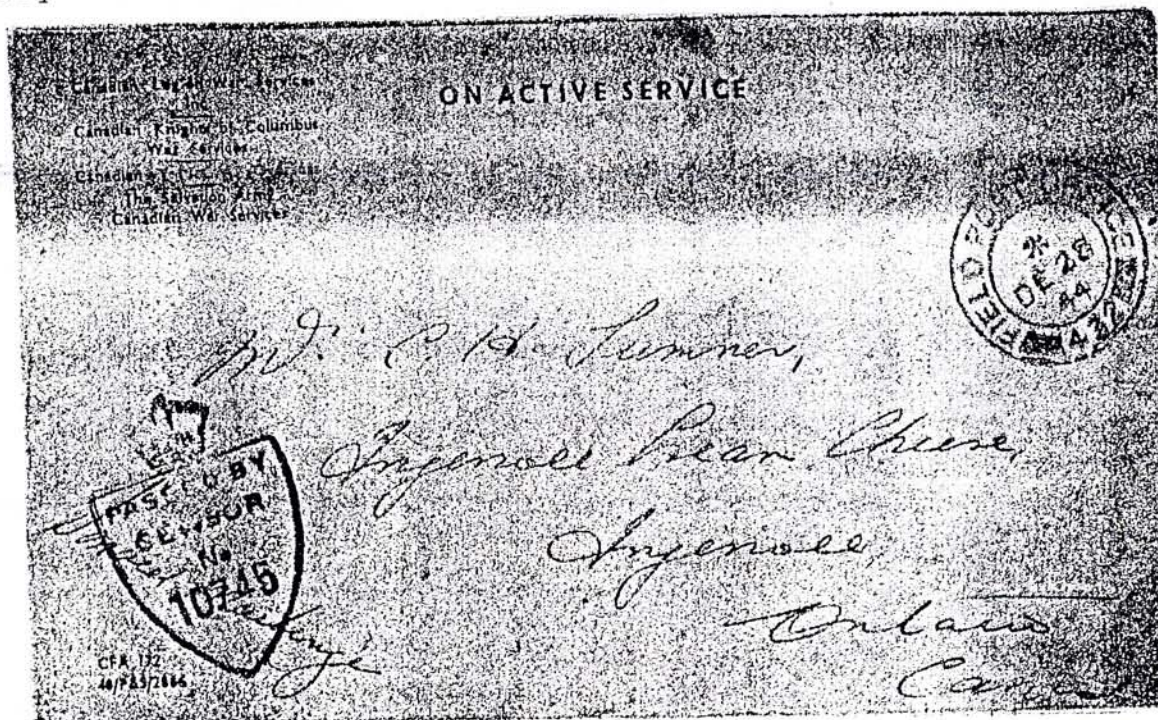 Canadian Legion War Services
Canadian Knights of Columbus
War Services
Canadian
The Salvation Army
Canadian War Services
ON ACTIVE SERVICE
FIELD POST OFFICE
DE 28
44
432
Mr. C. H. Sumner,
Ingersoll Cream Cheese,
Ingersoll,
Ontario
Canada
PASSED BY
CENSOR
No
10745
CFA 172